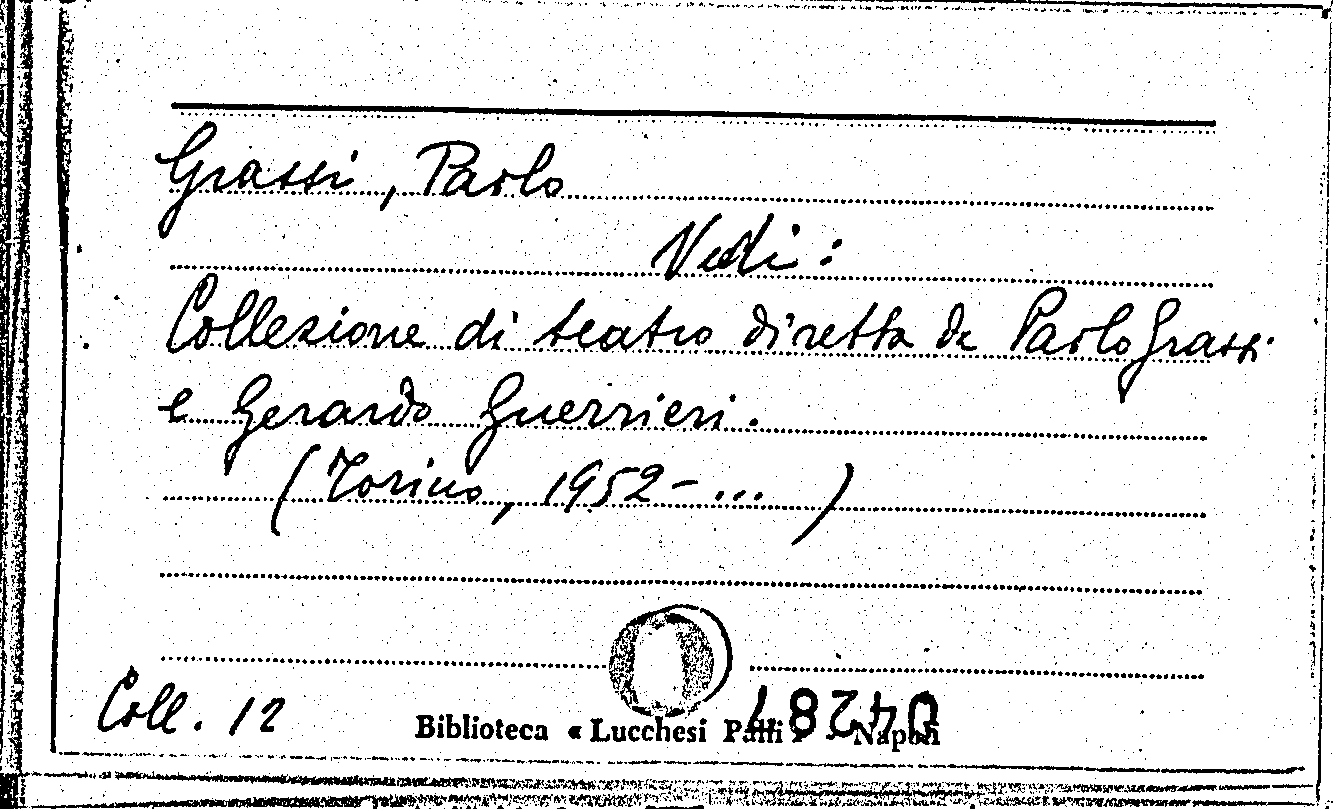 Grassi, Paolo
Vedi:
Collezione di teatro diretta da Paolo Grassi
e Gerardo Guerrieri.
(Torino, 1952-...)
Coll. 12
Biblioteca « Lucchesi Palli » - Napoli
04287